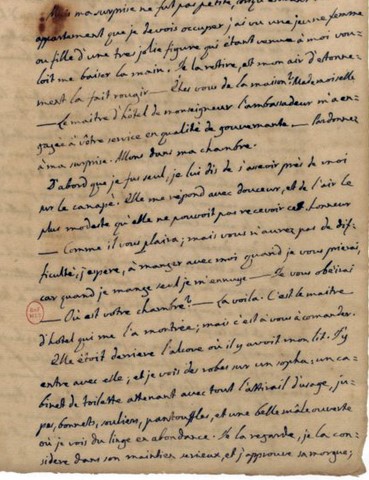 Mais ma surprise ne fut pas petite, lorsqu'entrant
appartement que je devois occuper j'ai vu une jeune femme
ou fille d'une tres jolie figure qui étant venue à moi vou-
loit me baiser la main. Je la retire, et mon air d'étonne-
ment la fait rougir — Etes vous de la maison? Mademoiselle
— Le maitre d'hôtel de monseigneur l'ambassadeur m'a en-
gagée à vôtre service en qualité de gouvernante — Pardonnez
à ma surprise. Allons dans ma chambre.
D'abord que je fus seul, je lui dis de s'asseoir près de moi
sur le canapé. Elle me répond avec douceur, et de l'air le
plus modeste qu'elle ne pouvoit pas recevoir cet honneur
— Comme il vous plaira; mais vous n'aurez pas de dif-
ficulté, j'espère, à manger avec moi quand je vous prierai,
car quand je mange seul je m'ennuye — Je vous obéirai
— Où est votre chambre? — La voila. C'est le maitre
d'hotel qui me l'a montrée; mais c'est à vous à comander.
Elle étoit derriere l'alcove où il y avoit mon lit. J'y
entre avec elle, et je vois des robes sur un sopha; un ca-
binet de toilette attenant avec tout l'attirail d'usage, ju-
pes, bonnets, souliers, pantouffles, et une belle mâle ouverte
où je vois du linge en abondance. Je la regarde, je la con-
sidere dans son maintien serieux, et j'approuve sa morgue;